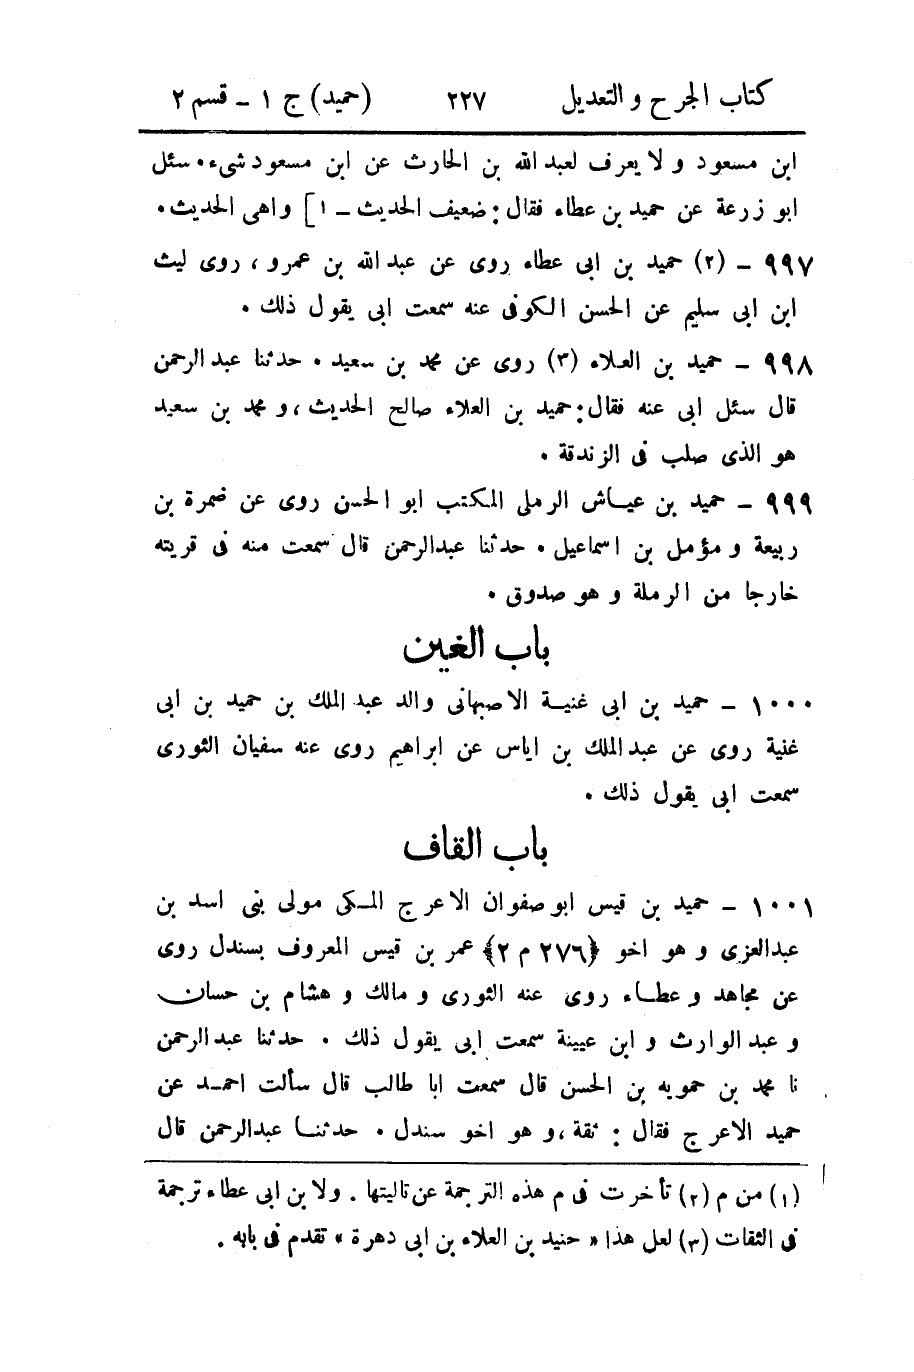 كتاب الجرح و التعديل ٢٢٧ (حميد) ج ١ - قسم ٢
ابن مسعود و لا يعرف لعبد الله بن الحارث عن ابن مسعود شىء. سئل
ابو زرعة عن حميد بن عطاء فقال: ضعيف الحديث - ١] واهى الحديث.
٩٩٧ - (٢) حميد بن ابى عطاء روى عن عبد الله بن عمرو، روى ليث
ابن ابى سليم عن الحسن الكوفى عنه سمعت ابى يقول ذلك.
٩٩٨ - حميد بن العلاء (٣) روى عن محمد بن سعيد. حدثنا عبد الرحمن
قال سئل ابى عنه فقال: حميد بن العلاء صالح الحديث، و محمد بن سعيد
هو الذى صلب فى الزندقة.
٩٩٩ - حميد بن عياش الرملى المكتب ابو الحسن روى عن ضمرة بن
ربيعة و مؤمل بن اسماعيل. حدثنا عبدالرحمن قال سمعت منه فى قريته
خارجا من الرملة و هو صدوق.
باب الغين
١٠٠٠ - حميد بن ابى غنية الاصبهانى والد عبد الملك بن حميد بن أبى
غنية روى عن عبد الملك بن اياس عن ابراهيم روى عنه سفيان الثورى
سمعت ابى يقول ذلك.
باب القاف
١٠٠١ - حميد بن قيس ابو صفوان الاعرج المكى مولى بنى اسد بن
عبدالعزى و هو اخو ﴿٢٧٦ م ٢﴾ عمر بن قيس المعروف بسندل روى
عن مجاهد و عطاء روى عنه الثورى و مالك و هشام بن حسان
و عبد الوارث و ابن عيينة سمعت ابى يقول ذلك. حدثنا عبد الرحمن
نا محمد بن حمويه بن الحسن قال سمعت ابا طالب قال سألت احمد عن
حميد الاعرج فقال: ثقة، و هو اخو سندل. حدثنا عبدالرحمن قال
(١) من م (٢) تأخرت فى م هذه الترجمة عن تاليتها. ولابن ابى عطاء ترجمة
فى الثقات (٣) لعل هذا « حنيد بن العلاء بن ابى دهرة » تقدم فى بابه.